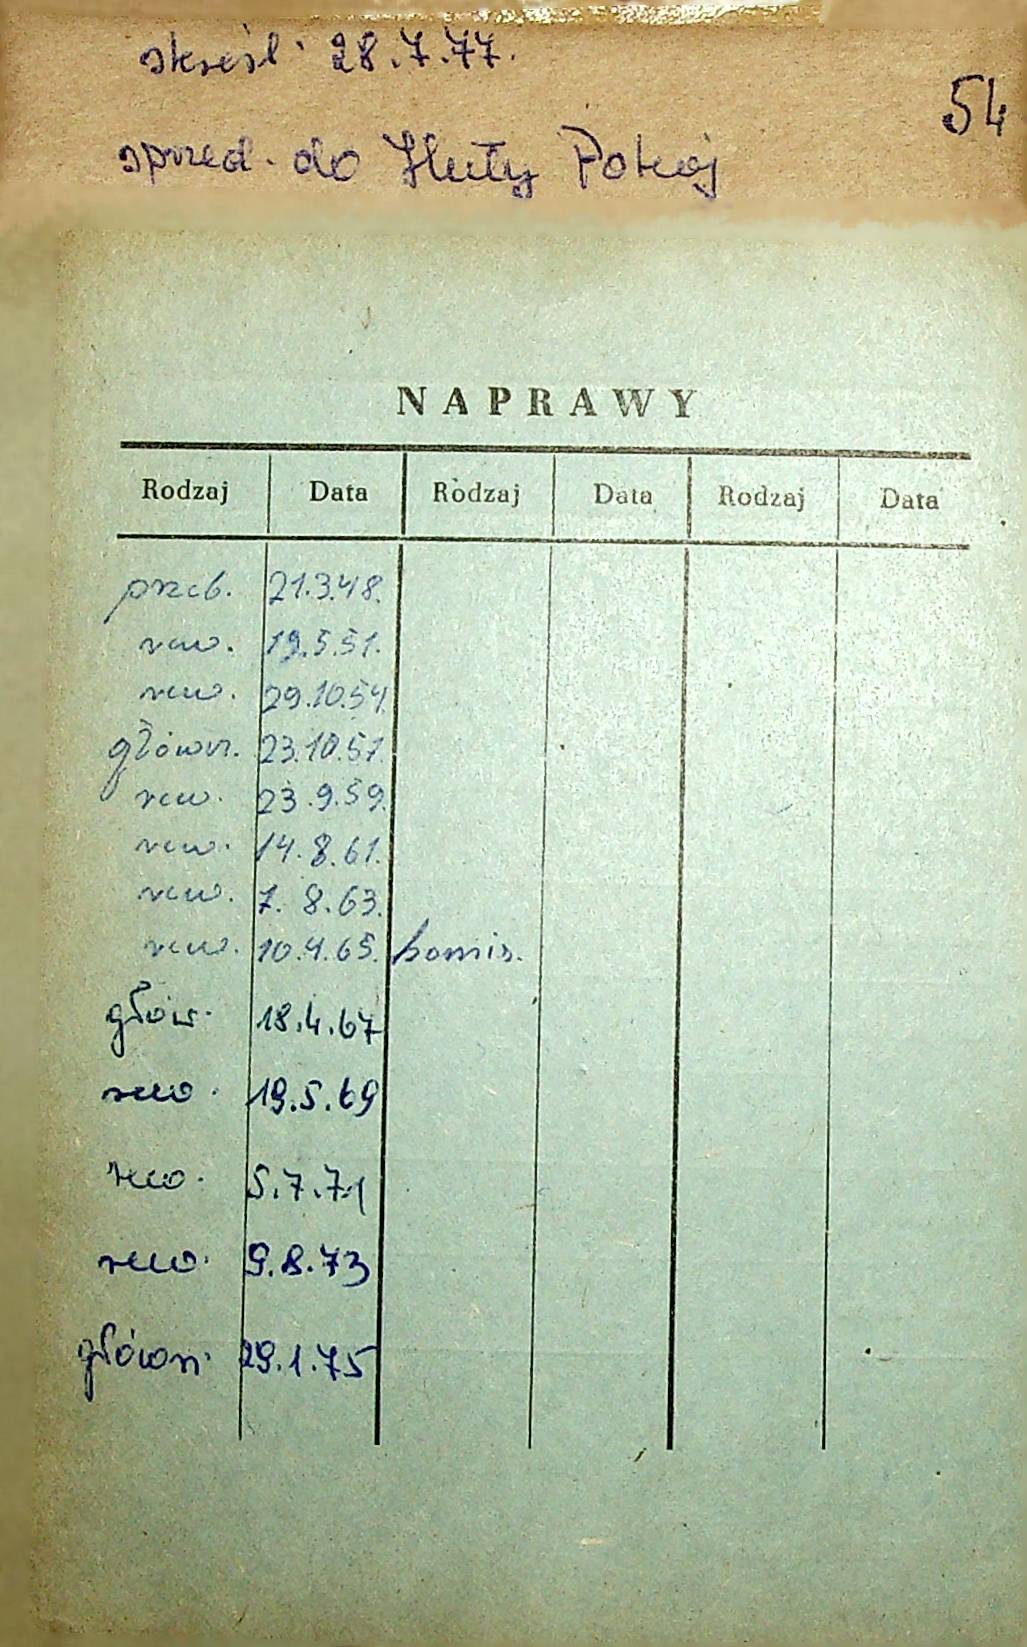 skreśl. 28.7.77.
54
sprzed. do Huty Pokój
NAPRAWY
Rodzaj Data Rodzaj Data Rodzaj Data
przeb. 21.3.48.
rew. 19.5.51.
rew. 29.10.54
główn. 23.10.57.
rew. 23.9.59.
rew. 14.8.61.
rew. 7.8.63.
rew. 10.4.65. komis.
głów. 18.4.67
rew. 19.5.69
rew. 5.7.71
rew. 9.8.73
główn. 29.1.75